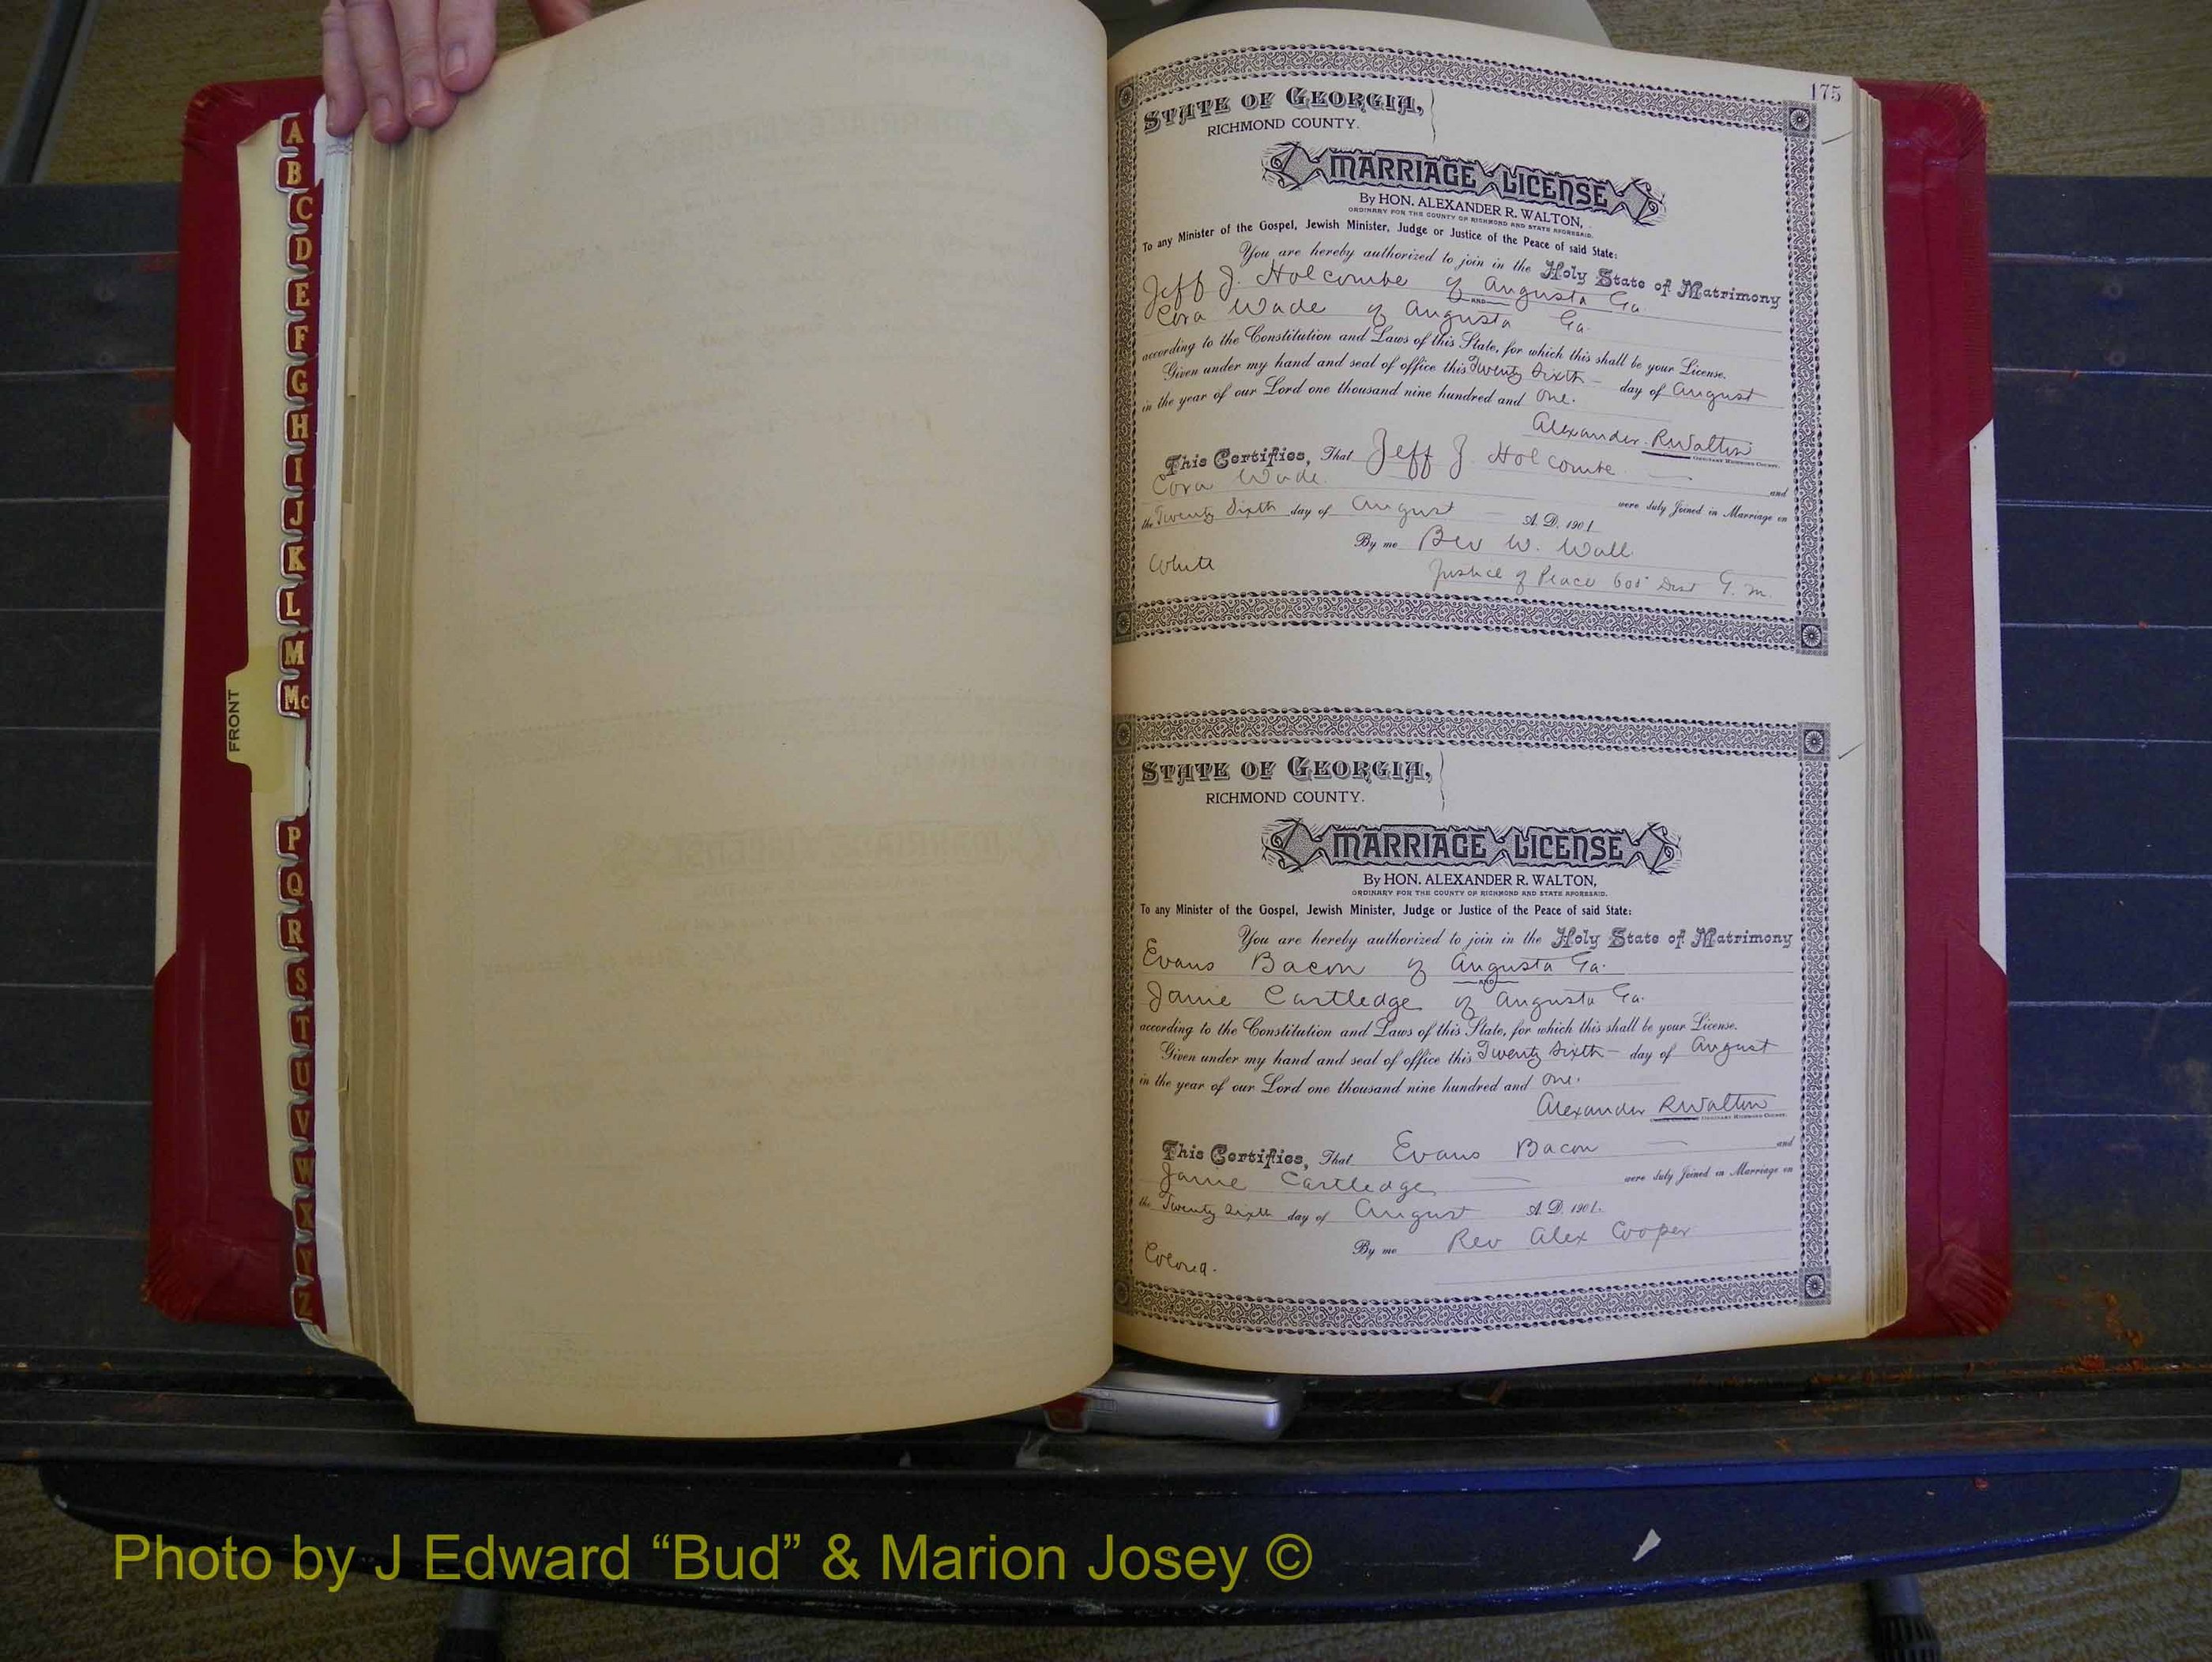 A
B
C
D
E
F
G
H
I
J
K
L
M
Mc
P
Q
R
S
T
U
V
W
X
Y
Z
FRONT
175
STATE OF GEORGIA,
RICHMOND COUNTY.
MARRIAGE LICENSE
By HON. ALEXANDER R. WALTON,
ORDINARY FOR THE COUNTY OF RICHMOND AND STATE AFORESAID.
To any Minister of the Gospel, Jewish Minister, Judge or Justice of the Peace of said State:
You are hereby authorized to join in the Holy State of Matrimony
Jeff J. Holcombe of Augusta Ga.
AND
Cora Wade of Augusta Ga.
according to the Constitution and Laws of this State, for which this shall be your License.
Given under my hand and seal of office this Twenty Sixth – day of August
in the year of our Lord one thousand nine hundred and One.
Alexander R Walton
ORDINARY RICHMOND COUNTY.
This Certifies, That Jeff J. Holcombe — and
Cora Wade. — were duly Joined in Marriage on
the Twenty Sixth day of August – A. D. 1901
By me Ben W. Wall
White Justice of Peace 605 Dist G. M.
STATE OF GEORGIA,
RICHMOND COUNTY.
MARRIAGE LICENSE
By HON. ALEXANDER R. WALTON,
ORDINARY FOR THE COUNTY OF RICHMOND AND STATE AFORESAID.
To any Minister of the Gospel, Jewish Minister, Judge or Justice of the Peace of said State:
You are hereby authorized to join in the Holy State of Matrimony
Evans Bacon of Augusta Ga.
AND
Janie Cartledge of Augusta Ga.
according to the Constitution and Laws of this State, for which this shall be your License.
Given under my hand and seal of office this Twenty Sixth – day of August
in the year of our Lord one thousand nine hundred and One.
Alexander R Walton
ORDINARY RICHMOND COUNTY.
This Certifies, That Evans Bacon — and
Janie Cartledge — were duly Joined in Marriage on
the Twenty Sixth day of August A. D. 1901.
By me Rev Alex Cooper
Colored.
Photo by J Edward “Bud” & Marion Josey ©